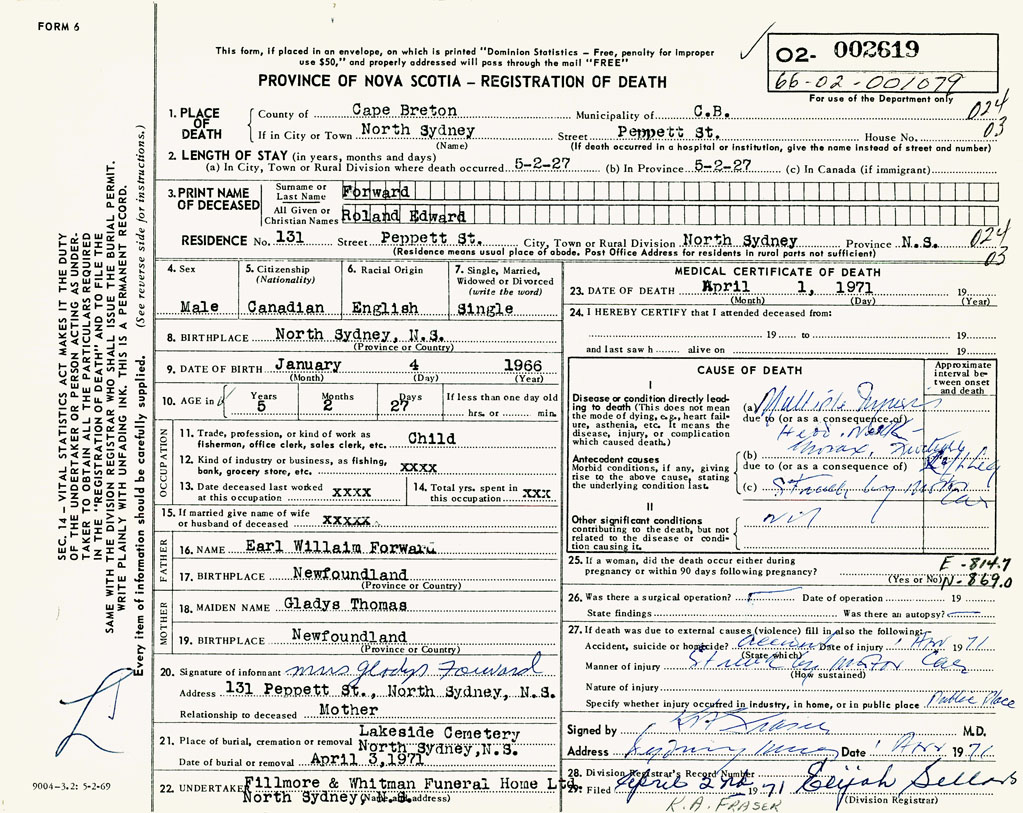 FORM 6
This form, if placed in an envelope, on which is printed "Dominion Statistics – Free, penalty for improper
use $50," and properly addressed will pass through the mail "FREE"
PROVINCE OF NOVA SCOTIA – REGISTRATION OF DEATH
02- 002619
66-02-001079
For use of the Department only
SEC. 14 – VITAL STATISTICS ACT MAKES IT THE DUTY
OF THE UNDERTAKER OR PERSON ACTING AS UNDER-
TAKER TO OBTAIN ALL THE PARTICULARS REQUIRED
IN THE "REGISTRATION OF DEATH" AND TO FILE THE
SAME WITH THE DIVISION REGISTRAR WHO SHALL ISSUE THE BURIAL PERMIT.
WRITE PLAINLY WITH UNFADING INK. THIS IS A PERMANENT RECORD.
Every item of information should be carefully supplied. (See reverse side for instructions.)
1. PLACE OF DEATH
County of Cape Breton Municipality of C.B. 024
If in City or Town North Sydney Street Peppett St. House No. 03
(Name) (If death occurred in a hospital or institution, give the name instead of street and number)
2. LENGTH OF STAY (in years, months and days)
(a) In City, Town or Rural Division where death occurred 5-2-27 (b) In Province 5-2-27 (c) In Canada (if immigrant)
3. PRINT NAME OF DECEASED
Surname or Last Name Forward
All Given or Christian Names Roland Edward
RESIDENCE No. 131 Street Peppett St. City, Town or Rural Division North Sydney Province N.S. 024
(Residence means usual place of abode. Post Office Address for residents in rural parts not sufficient) 03
4. Sex
Male
5. Citizenship (Nationality)
Canadian
6. Racial Origin
English
7. Single, Married, Widowed or Divorced (write the word)
Single
8. BIRTHPLACE North Sydney, N.S.
(Province or Country)
9. DATE OF BIRTH January 4 1966
(Month) (Day) (Year)
10. AGE in Years Months Days If less than one day old
5 2 27 hrs. or min.
OCCUPATION
11. Trade, profession, or kind of work as
fishermen, office clerk, sales clerk, etc. Child
12. Kind of industry or business, as fishing,
bank, grocery store, etc. xxxx
13. Date deceased last worked at this occupation xxxx
14. Total yrs. spent in this occupation xxx
15. If married give name of wife
or husband of deceased xxxxx
FATHER
16. NAME Earl Willaim Forward
17. BIRTHPLACE Newfoundland
(Province or Country)
MOTHER
18. MAIDEN NAME Gladys Thomas
19. BIRTHPLACE Newfoundland
(Province or Country)
20. Signature of informant Mrs Gladys Forward
Address 131 Peppett St., North Sydney, N.S.
Relationship to deceased Mother
21. Place of burial, cremation or removal Lakeside Cemetery
North Sydney,N.S.
Date of burial or removal April 3,1971
22. UNDERTAKER Fillmore & Whitman Funeral Home Ltd.
North Sydney, N.S.
(Name and address)
MEDICAL CERTIFICATE OF DEATH
23. DATE OF DEATH April 1, 1971 19
(Month) (Day) (Year)
24. I HEREBY CERTIFY that I attended deceased from:
19 to 19
and last saw h alive on 19
CAUSE OF DEATH
Approximate interval between onset and death
I
Disease or condition directly lead-
ing to death (This does not mean
the mode of dying, e.g., heart fail-
ure, asthenia, etc. It means the
disease, injury, or complication
which caused death.)
(a) Multiple Injuries
due to (or as a consequence of)
Head, Neck
Thorax,
Antecedent causes
Morbid conditions, if any, giving
rise to the above cause, stating
the underlying condition last.
(b)
due to (or as a consequence of) Leg
(c) Struck by Motor
Car
II
Other significant conditions
contributing to the death, but not
related to the disease or condi-
tion causing it.
nil
25. If a woman, did the death occur either during
pregnancy or within 90 days following pregnancy?
(Yes or No)
E-814.7
N-869.0
26. Was there a surgical operation? Date of operation 19
State findings Was there an autopsy?
27. If death was due to external causes (violence) fill in also the following:
Accident, suicide or homicide? accident Date of injury 1 Apr 1971
(State which)
Manner of injury Struck by Motor Car
(How sustained)
Nature of injury
Specify whether injury occurred in industry, in home, or in public place Public Place
Signed by K A Fraser M.D.
Address Sydney Mines Date 1 Apr 1971
28. Division Registrar's Record Number
29. Filed April 2nd 1971 Elijah Sellars
(Division Registrar)
K.A. FRASER
9004-3.2: 5-2-69